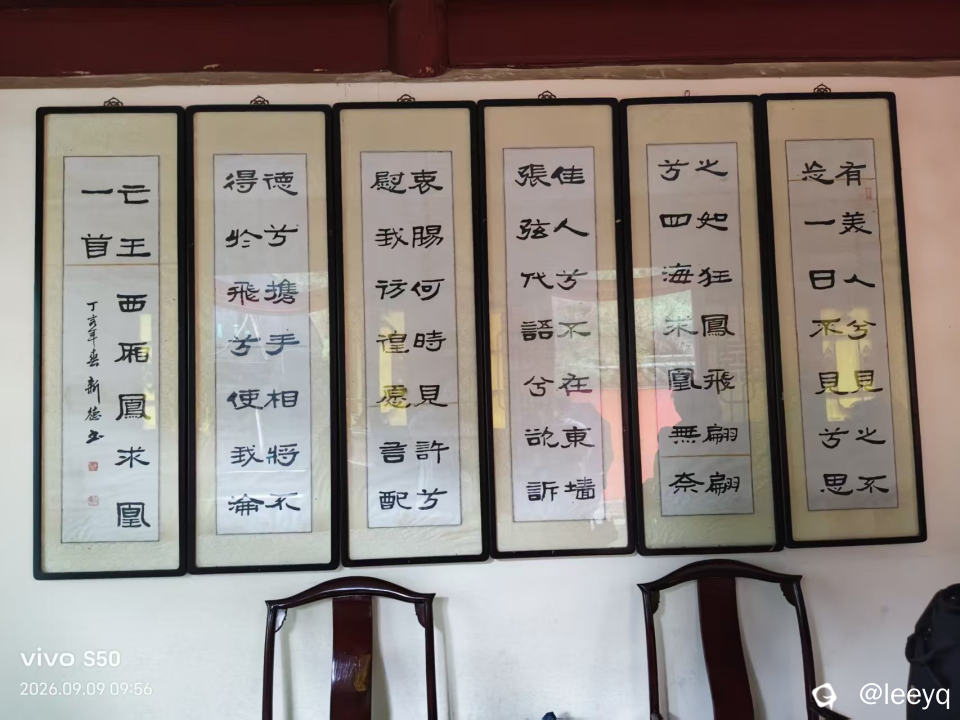 有美人兮見之不
忘一日不見兮思
之如狂鳳飛翩翩
兮四海求凰無奈
佳人兮不在東墻
張弦代語兮欲訴
衷賜何時見許兮
慰我彷徨愿言配
德兮攜手相將不
得於飛兮使我淪
亡王西廂鳳求凰
一首
丁亥年新德书
vivo S50
2026.09.09 09:56
@leeyq